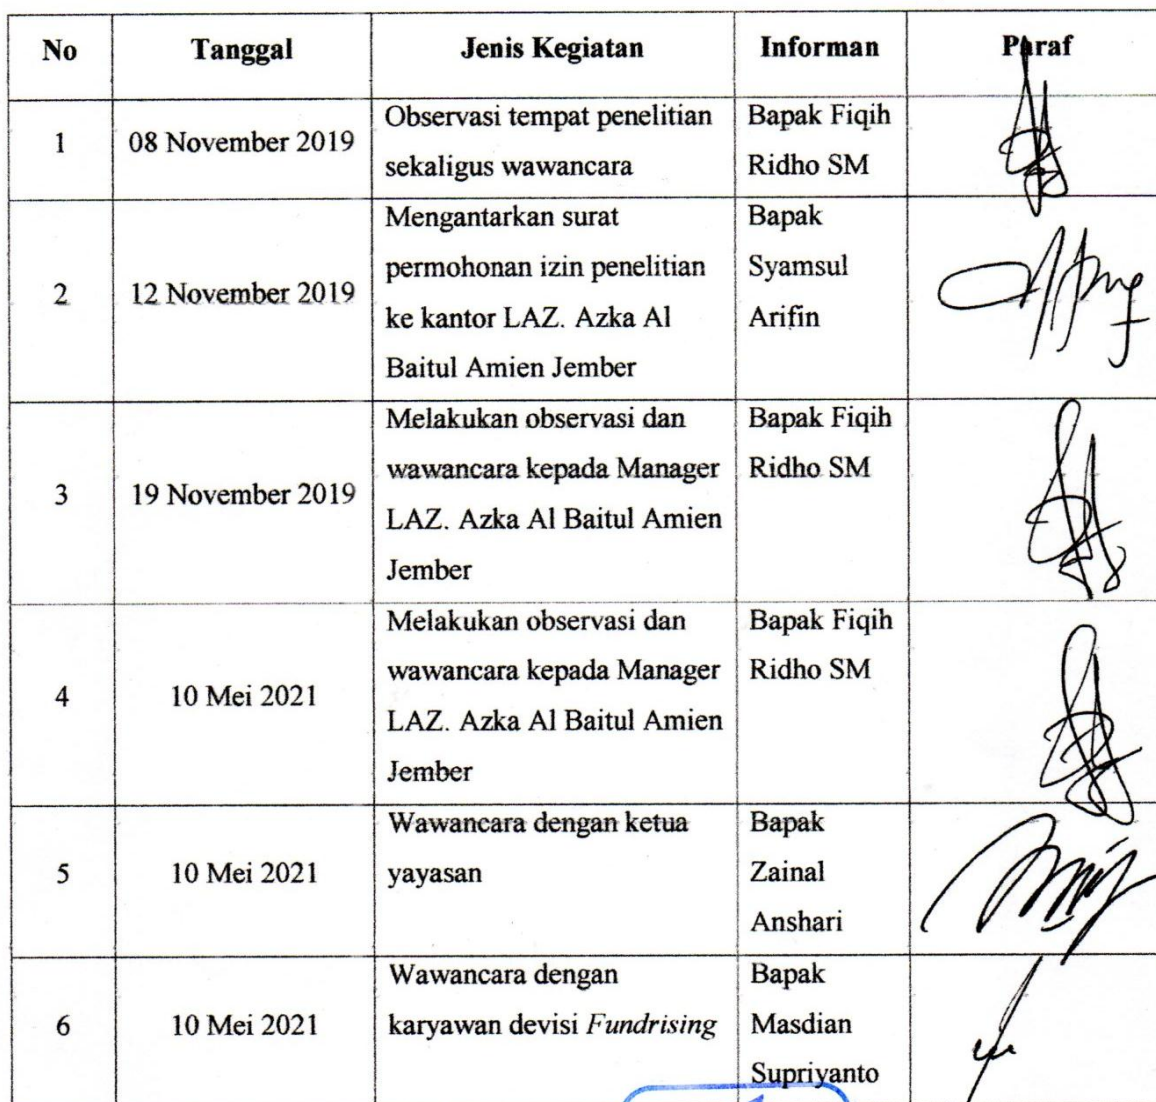 No Tanggal Jenis Kegiatan Informan Paraf
1 08 November 2019 Observasi tempat penelitian sekaligus wawancara Bapak Fiqih Ridho SM
2 12 November 2019 Mengantarkan surat permohonan izin penelitian ke kantor LAZ. Azka Al Baitul Amien Jember Bapak Syamsul Arifin
3 19 November 2019 Melakukan observasi dan wawancara kepada Manager LAZ. Azka Al Baitul Amien Jember Bapak Fiqih Ridho SM
4 10 Mei 2021 Melakukan observasi dan wawancara kepada Manager LAZ. Azka Al Baitul Amien Jember Bapak Fiqih Ridho SM
5 10 Mei 2021 Wawancara dengan ketua yayasan Bapak Zainal Anshari
6 10 Mei 2021 Wawancara dengan karyawan devisi Fundrising Bapak Masdian Supriyanto